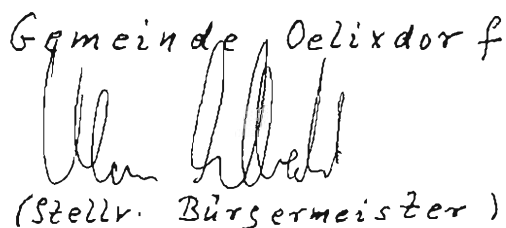 Gemeinde Oelixdorf
(Stellv. Bürgermeister)